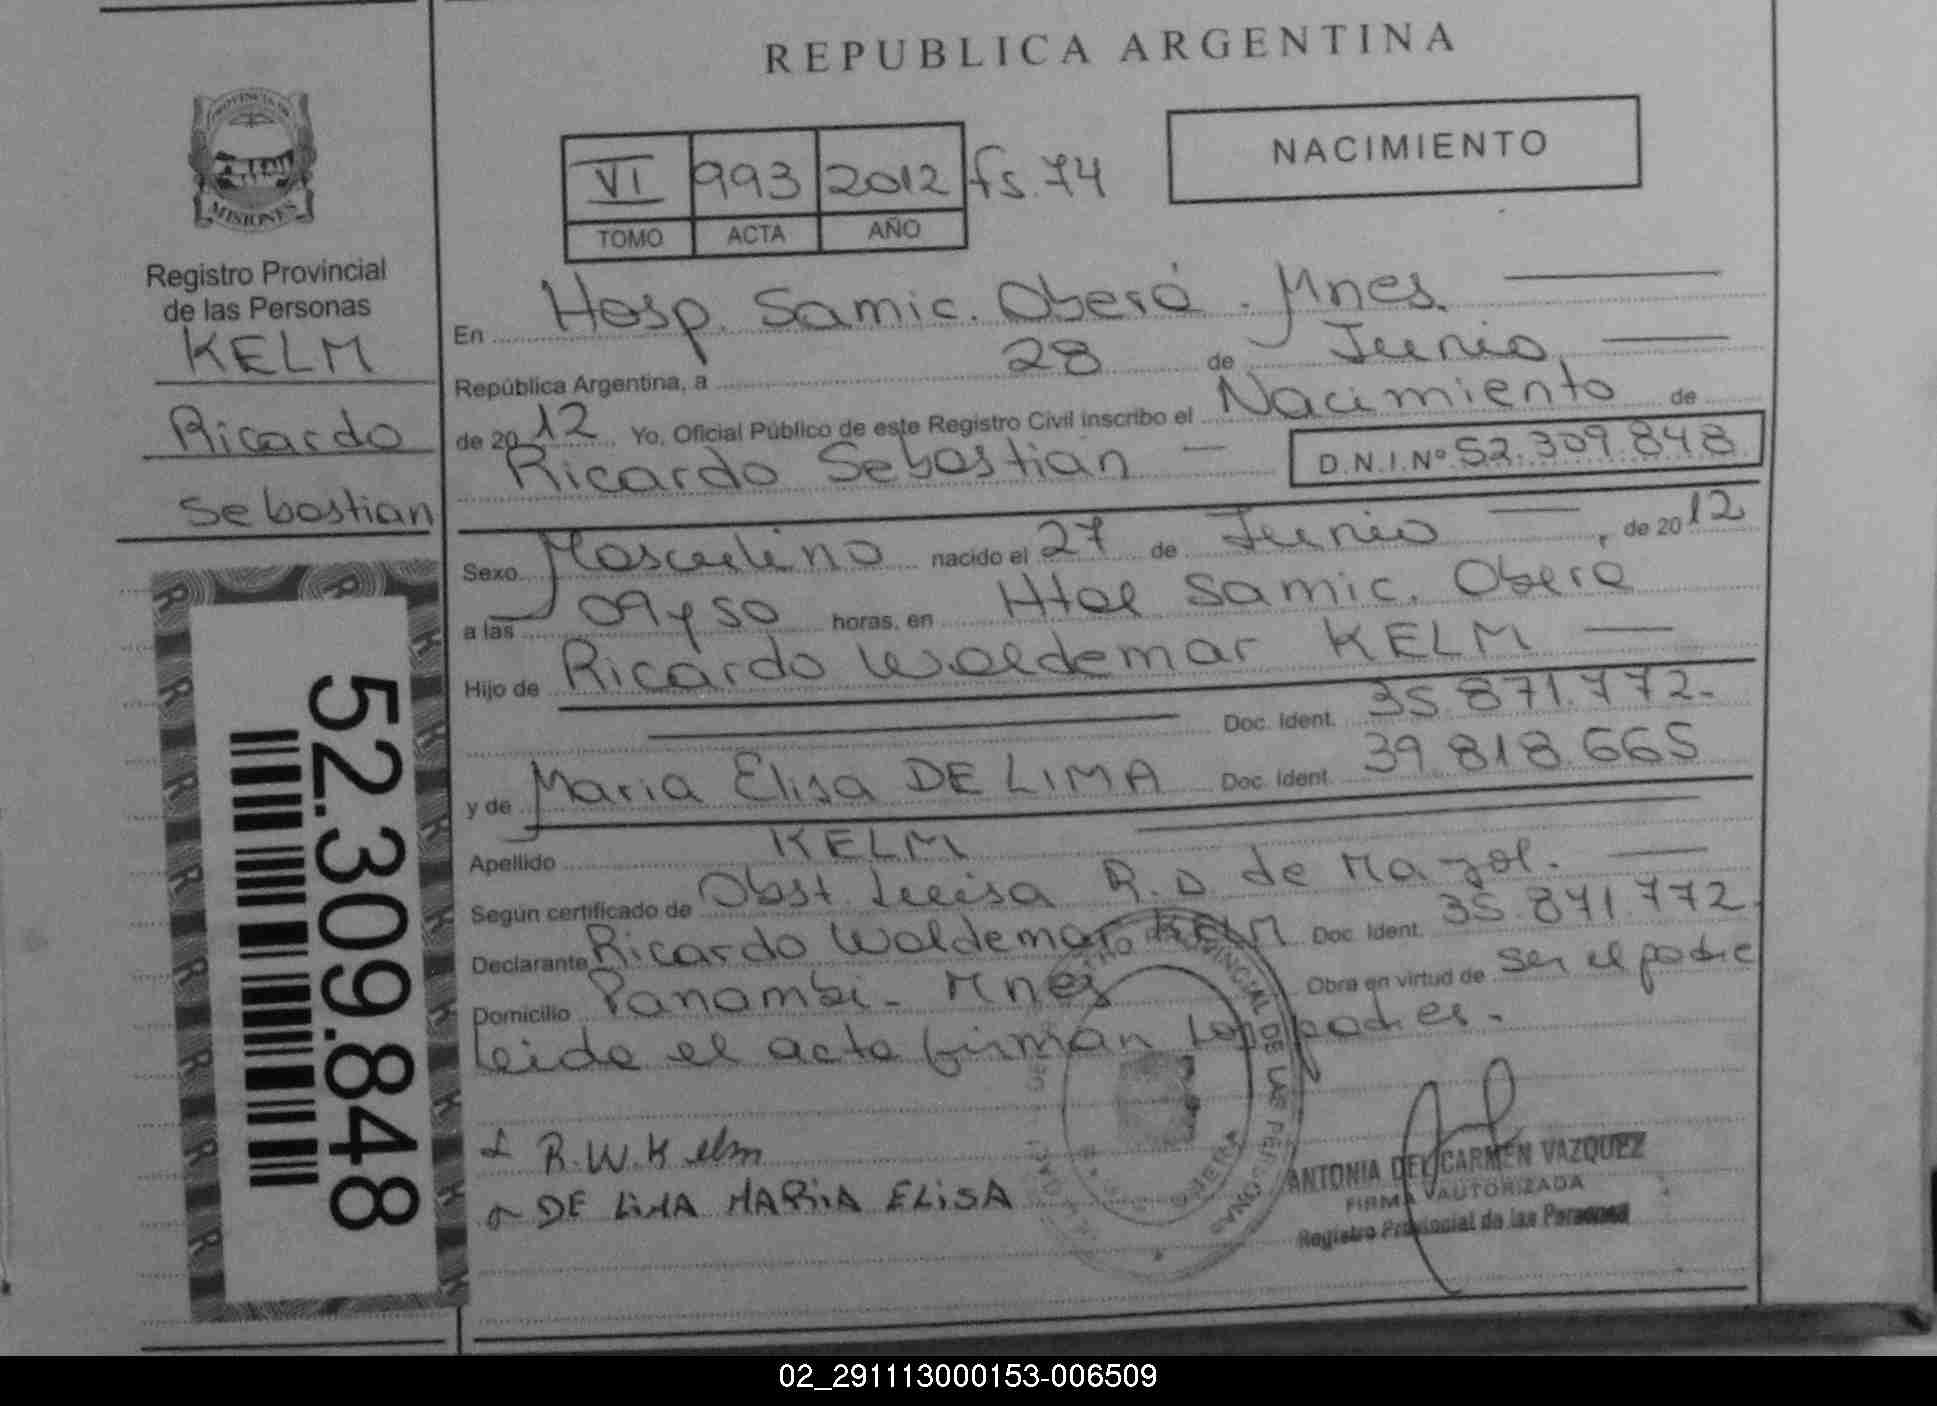 REPUBLICA ARGENTINA
PROVINCIA DE
MISIONES
Registro Provincial
de las Personas
KELM
Ricardo
Sebastian
52.309.848
NACIMIENTO
VI 993 2012 fs. 74
TOMO ACTA AÑO
En Hosp. Samic. Oberá. Mnes.
República Argentina, a 28 de Junio,
de 2012 Yo, Oficial Público de este Registro Civil inscribo el Nacimiento de
Ricardo Sebastian — D.N.I.Nº 52.309.848
Sexo Masculino nacido el 27 de Junio —, de 2012
a las 09 y 50 horas, en Htal Samic. Oberá
Hijo de Ricardo Waldemar KELM —
Doc. Ident. 35.871.772.
y de Maria Elisa DE LIMA Doc. Ident. 39.818.665
Apellido KELM
Según certificado de Obst. Luisa R. D. de Mayol. —
Declarante Ricardo Waldemar KELM Doc. Ident. 35.871.772
Domicilio Panambi - Mnes Obra en virtud de ser el padre
leida el acta firman los padres.
R.W.Kelm
DE LiMA MARiA ELiSA
PROVINCIAL DE LAS PERSONAS
ANTONIA DEL CARMEN VAZQUEZ
FIRMA AUTORIZADA
Registro Provincial de las Personas
02_291113000153-006509